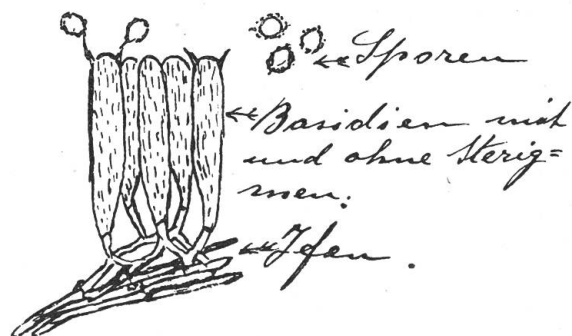 Sporen
Basidien mit
und ohne Sterig=
men.